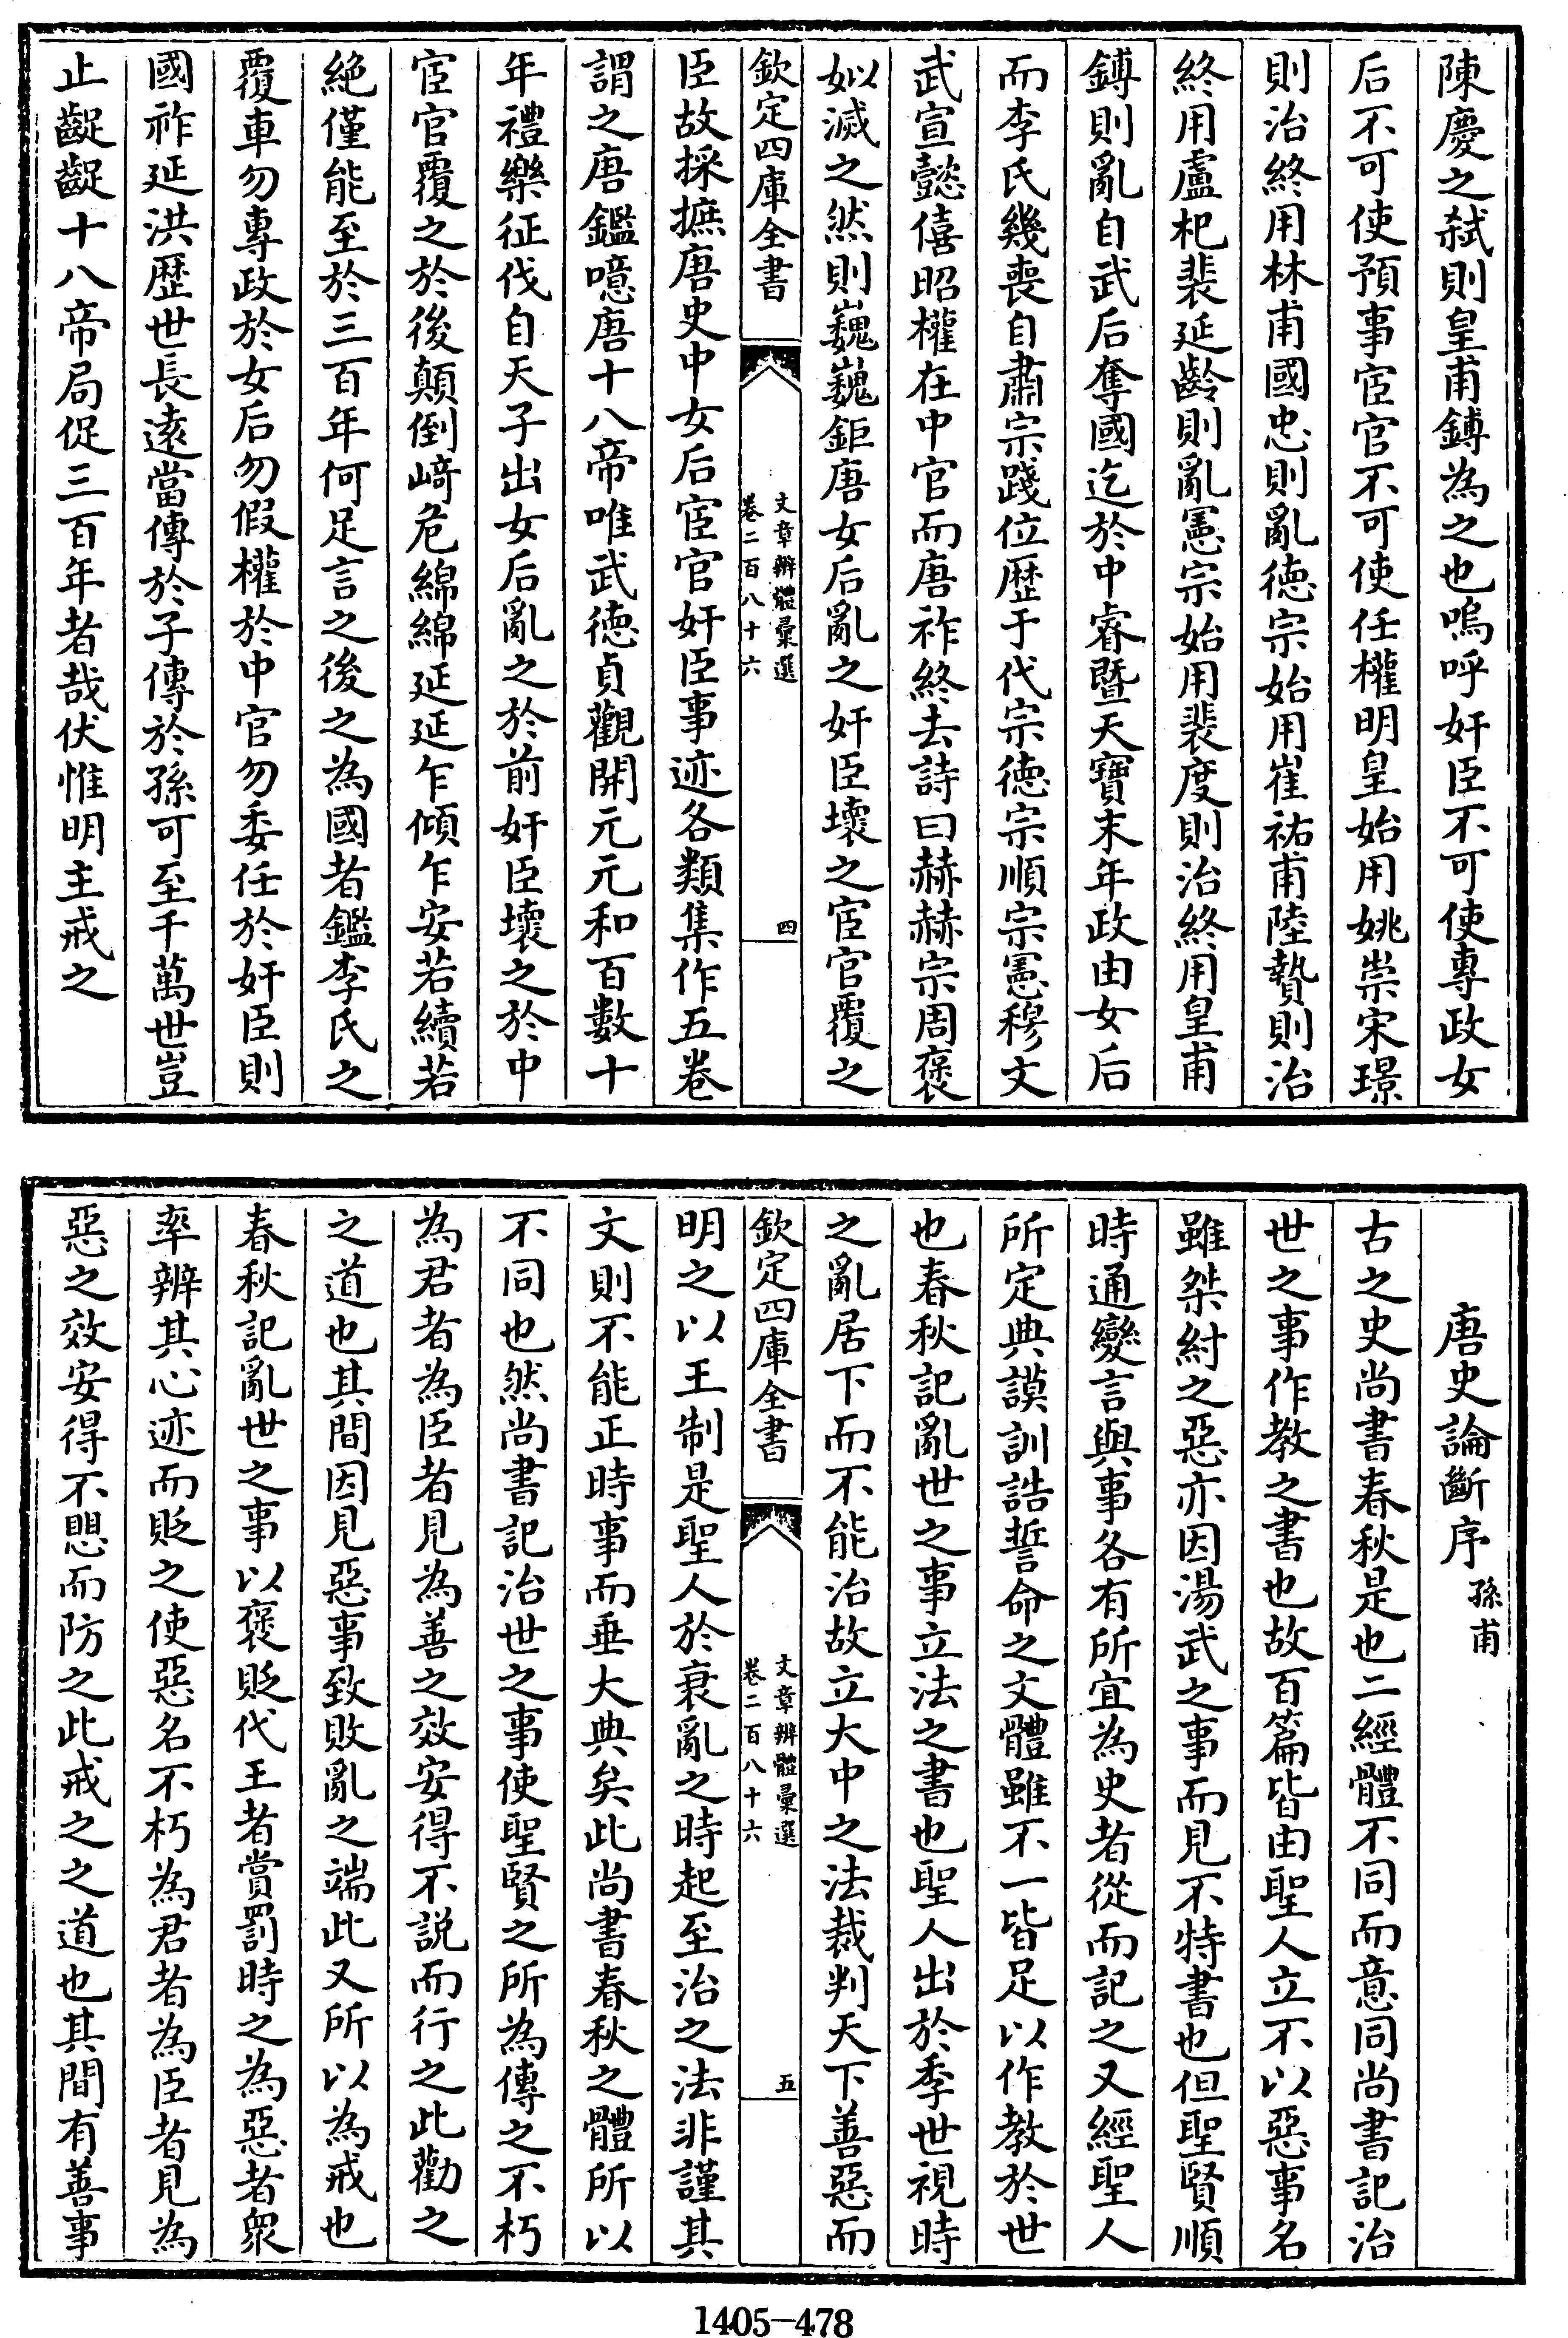 陳慶之弑則皇甫鎛為之也嗚呼奸臣不可使專政女
后不可使預事宦官不可使任權明皇始用姚崇宋璟
則治終用林甫國忠則亂德宗始用崔祐甫陸贄則治
終用盧杞裴延齡則亂憲宗始用裴度則治終用皇甫
鎛則亂自武后奪國迄於中睿暨天寶末年政由女后
而李氏幾喪自肅宗踐位歴于代宗德宗順宗憲穆文
武宣懿僖昭權在中官而唐祚終去詩曰赫赫宗周褒
姒滅之然則巍巍鉅唐女后亂之奸臣壞之宦官覆之
欽定四庫全書
文章辨體彙選
卷二百八十六
四
臣故採摭唐史中女后宦官奸臣事迹各類集作五卷
謂之唐鑑噫唐十八帝唯武德貞觀開元元和百數十
年禮樂征伐自天子出女后亂之於前奸臣壞之於中
宦官覆之於後顛倒﨑危綿綿延延乍傾乍安若續若
絶僅能至於三百年何足言之後之為國者鑑李氏之
覆車勿專政於女后勿假權於中官勿委任於奸臣則
國祚延洪歴世長遠當傳於子傳於孫可至千萬世豈
止齪齪十八帝局促三百年者哉伏惟明主戒之
唐史論斷序 孫甫
古之史尚書春秋是也二經體不同而意同尚書記治
世之事作教之書也故百篇皆由聖人立不以惡事名
雖桀紂之惡亦因湯武之事而見不特書也但聖賢順
時通變言與事各有所宜為史者從而記之又經聖人
所定典謨訓誥誓命之文體雖不一皆足以作教於世
也春秋記亂世之事立法之書也聖人出於季世視時
之亂居下而不能治故立大中之法裁判天下善惡而
欽定四庫全書
文章辨體彙選
卷二百八十六
五
明之以王制是聖人於衰亂之時起至治之法非謹其
文則不能正時事而垂大典矣此尚書春秋之體所以
不同也然尚書記治世之事使聖賢之所為傳之不朽
為君者為臣者見為善之效安得不説而行之此勸之
之道也其間因見惡事致敗亂之端此又所以為戒也
春秋記亂世之事以褒貶代王者賞罰時之為惡者衆
率辨其心迹而貶之使惡名不朽為君者為臣者見為
惡之效安得不思而防之此戒之之道也其間有善事
1405-478